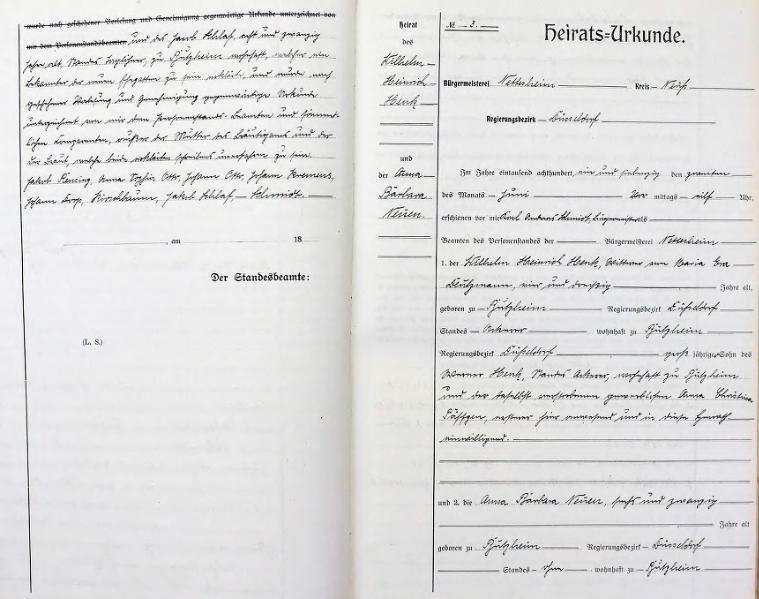 wurde nach geschehener Vorlesung und Genehmigung gegenwärtige Urkunde unterzeichnet von
mir dem Personenstandsbeamten und des Jacob Schlaf, acht und zwanzig
Jahre alt, Standes, zu wohnhaft, welcher ein
Bekannter der neuen Ehegatten zu sein erklärt, und wurde nach
geschehener Vorlesung und Genehmigung gegenwärtige Urkunde
unterzeichnet von mir dem Personenstands-Beamten und sämmt-
lichen Comparenten, außer der Mutter des Bräutigams und der
der Braut, welche beide erklärten schreibens unerfahren zu sein.
Jakob, Anna Sophia Otto, Johann Otto, Johann
Johann, Kirschbaum, Jakob Schlaf, – Schmidt.
, am 18
Der Standesbeamte:
(L. S.)
Heirat
des
Wilhelm
Heinrich
Henk
und
der Anna
Barbara
Neuen.
№ 3.
Heirats-Urkunde.
Bürgermeisterei Nettesheim Kreis Neuß
Regierungsbezirk Düsseldorf
Im Jahre eintausend achthundert, ein und siebenzig den zweiten
des Monats Juni Vor mittags elf Uhr,
erschienen vor mir Karl Andreas Schmidt, Bürgermeister als
Beamten des Personenstandes der Bürgermeisterei Nettesheim
1. der Wilhelm Heinrich Henk, Wittwer von Maria Eva
, vier und dreißig Jahre alt,
geboren zu Regierungsbezirk Düsseldorf
Standes Ackerer wohnhaft zu
Regierungsbezirk Düsseldorf groß jähriger Sohn des
Werner Henk, Standes Ackerer, wohnhaft zu
und der daselbst verstorbenen gewerblosen Anna Christina
, ersterer hier anwesend und in diese Heirath
einwilligend.
und 2. die Anna Barbara Neuen, sechs und zwanzig
Jahre alt
geboren zu Regierungsbezirk Düsseldorf
Standes ohne wohnhaft zu